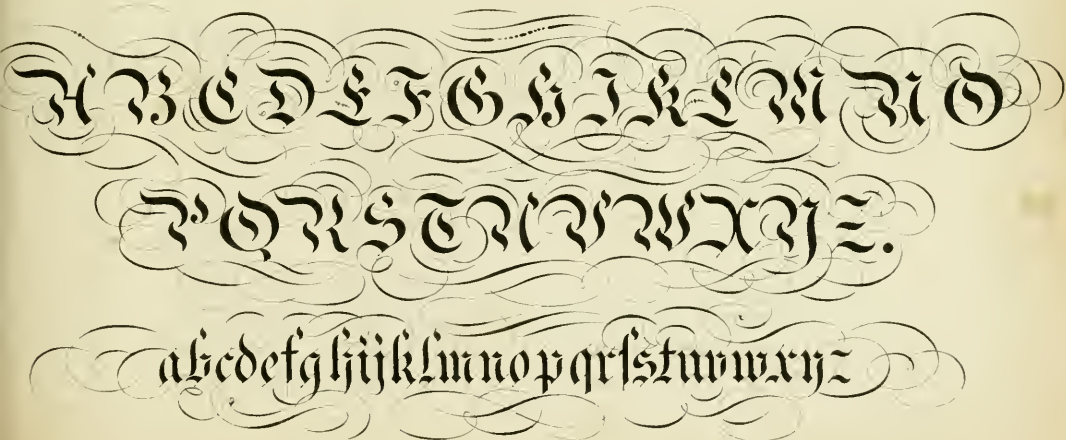 A B C D E F G H I K L M N O
P Q R S T U V W X Y Z.
abcdefghijklmnopqrſstuvwxyz